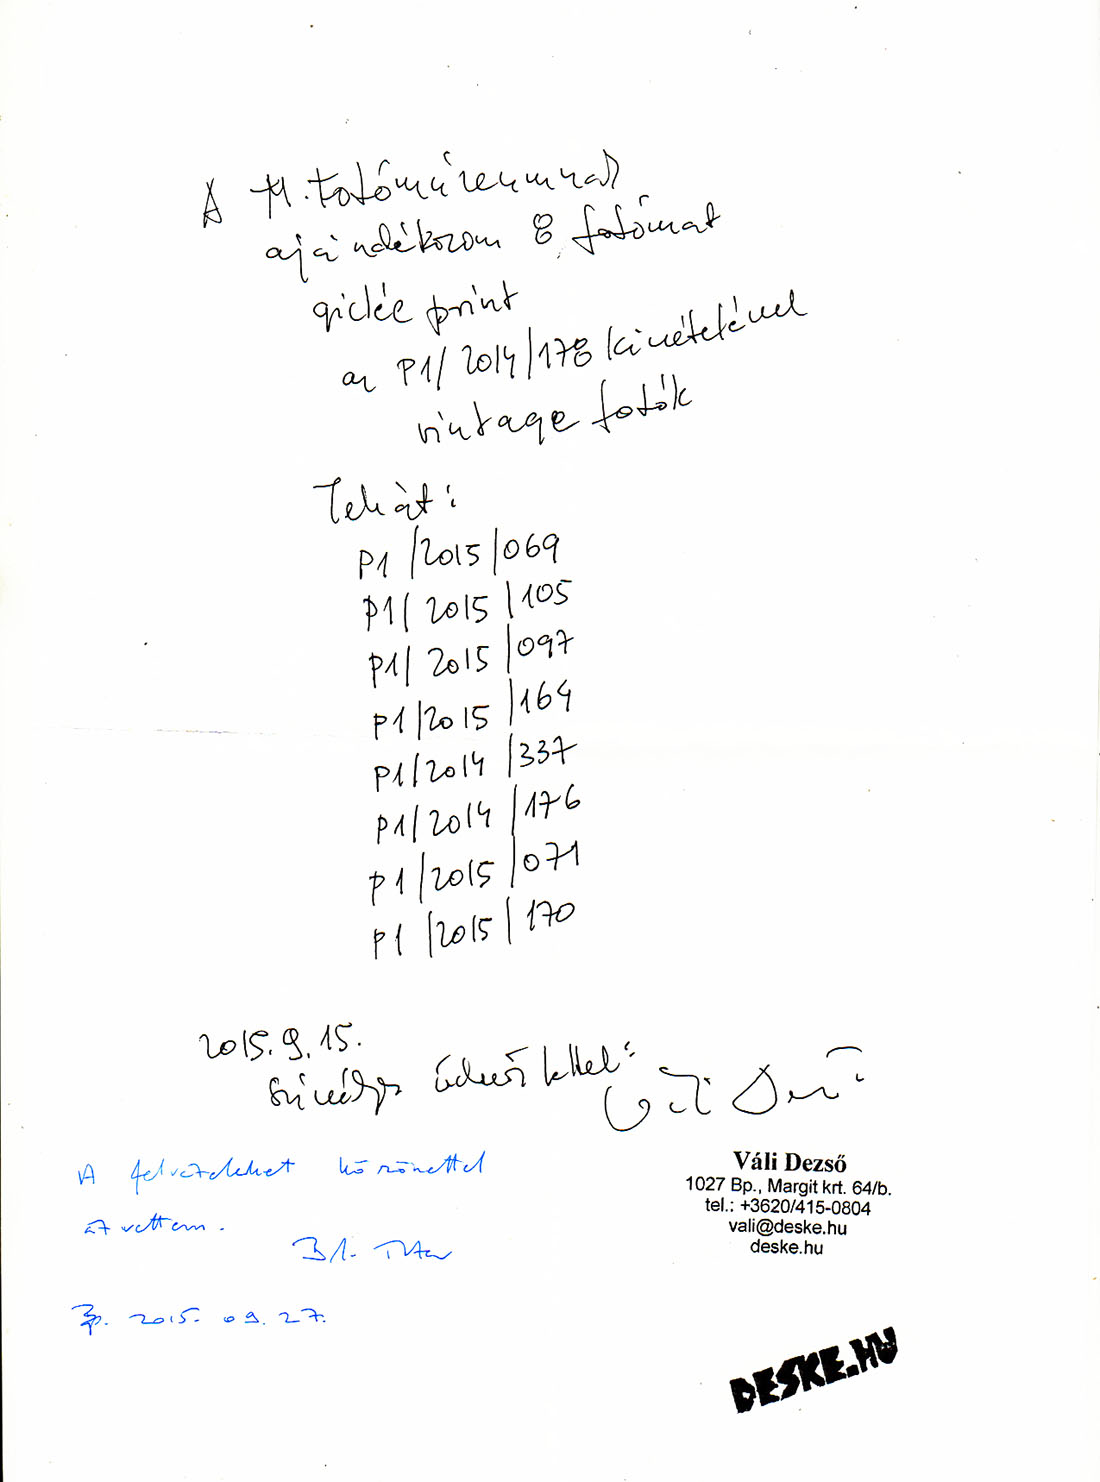 A M. Fotómúzeumnak
ajándékozom 8 fotómat
giclée print
az P1/2014/178 kivételével
vintage fotók
Tehát:
P1/2015/069
P1/2015/105
P1/2015/097
P1/2015/164
P1/2014/337
P1/2014/176
P1/2015/071
P1/2015/170
2015.9.15.
Szívélyes üdvözlettel:
Váli Dezső
A felvételeket köszönettel
átvettem.
Bp. 2015. 09. 27.
Váli Dezső
1027 Bp., Margit krt. 64/b.
tel.: +3620/415-0804
vali@deske.hu
deske.hu
DESKE.HU